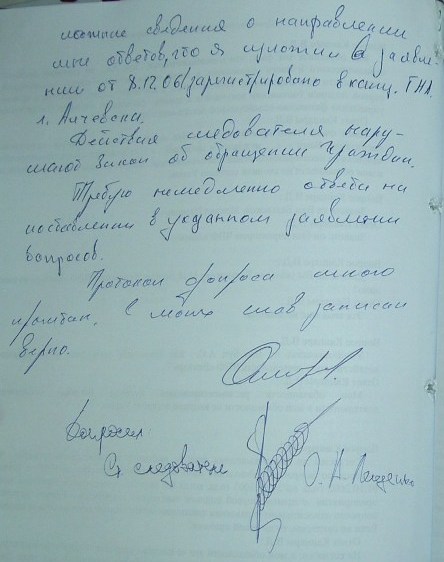 ложные сведения о направлении
мне ответов, что я изложил в заявле-
нии от 8.12.06/зарегистрировано в канц.
г. Алчевска.
Действия следователя нару-
шают Закон об обращении граждан.
Требую немедленно ответа на
поставленные в указанном заявлении
вопросов.
Протокол допроса мною
прочитан, с моих слов записан
верно.
Допросил
Ст следователь О. А.